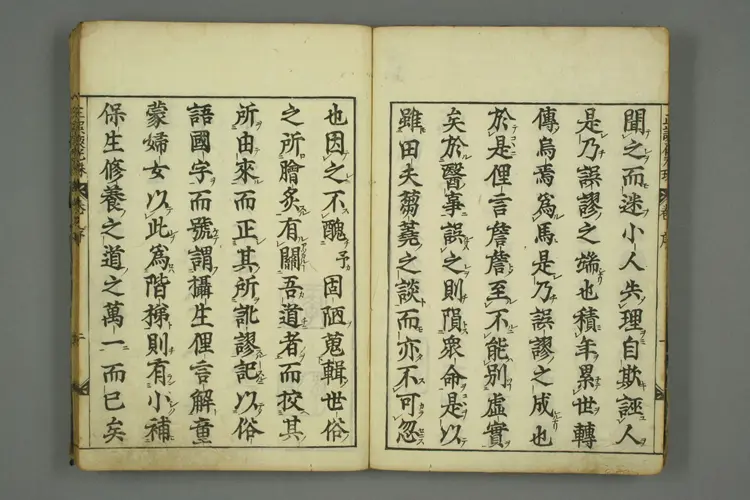 聞之而迷小人失理自欺誣人
是乃誤謬之端也積年累世轉
傳烏焉爲馬是乃誤謬之成也
於是俚言詹詹至不能別虛實
矣於醫事誤之則隕衆命是以
雖田夫蒭蕘之談而亦不可忽
也因之不醜予固陋蒐輯世俗
之所膾炙有關吾道者而挍其
所由來而正其所訛謬記以俗
語國字而號謂攝生俚言解童
蒙婦女以此爲階梯則有小補
保生修養之道之萬一而已矣